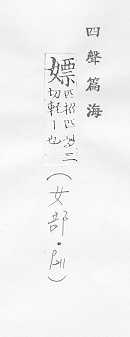 四聲篇海
嫖
匹招匹妙二
切輕丨也
(女部·)